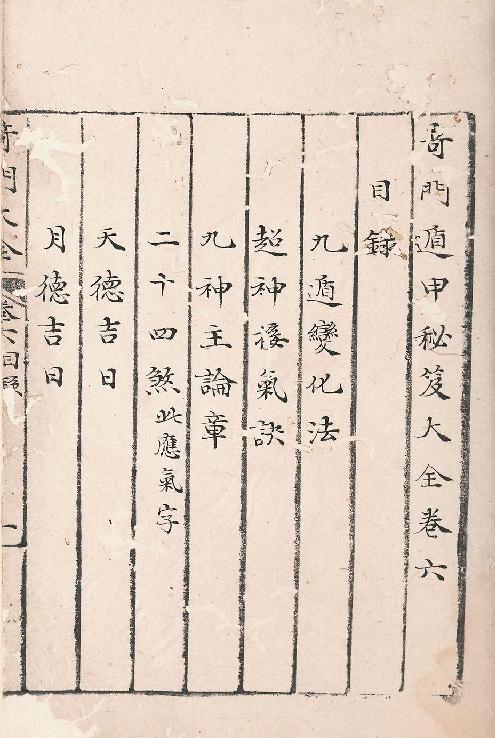 奇門遁甲秘笈大全卷六
目録
九遁變化法
超神接氣訣
九神主論章
二十四煞此應氣字
天德吉日
月德吉日
奇門大全 卷六目録 一